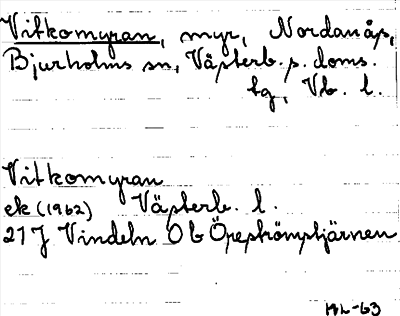 Vitkomyran, myr, Nordanås,
Bjurholms sn, Västerb. s. doms.
tg, Vb. l.
Vitkomyran
ek (1962) Västerb. l.
21 J Vindeln 0 b
HL-63